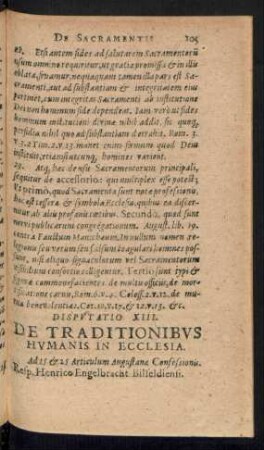 DE SACRAMENTIS 105
Etsi autem fides ad salutarem Sacramentorū
usum omnino requiritur, ut gratia promissa & in illis
oblata, fruamur, nequaquam tamen illa pars est Sa-
cramenti, aut ad substantiam & integritatem eius
pertinet, cum integritas Sacramenti ab institutione
Dei non hominum fide dependeat. Iam verò ut fides
hominum institutioni divinæ nihil addit, sic quoq;
perfidia nihil quoad substantiam detrahit. Rom. 3.
manet enim firmum quod Deus
instituit, etiamsi cuncti homines varient.
29. Atq; hæc de usu Sacramentorum principali,
sequitur de accessorio: qui multiplex esse potest;
ut primò, quod Sacramenta sunt notæ professionis,
hoc est tessera & symbola Ecclesiæ, quibus ea discer-
natur ab alijs profanis cœtibus. Secundò, quod sunt
nervi publicarum congregationum. August. lib. 19.
contra Faustum Manichæum, In nullum nomen re-
ligionis seu verum seu falsum coagulari homines pos-
sunt, nisi aliquo signaculorum vel Sacramentorum
visibilium consortio colligentur. Tertiò sunt typi &
signa commonefacientes de multis officijs, de mor-
tificatione carnis, Rom. 6. v. 4. Coloss. 2. v. 12. de mu-
tua benevolentia 1. Cor. 10. v. 17. & 12. v. 13. &c.
DISPVTATIO XIII.
DE TRADITIONIBVS
HVMANIS IN ECCLESIA.
Ad 15 & 25 Articulum Augustanæ Confessionis.
Resp. Henrico Engelbracht Bilfeldiensi.